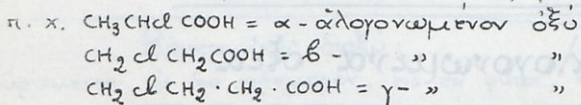 π. χ. CH₃CHCl COOH = α - ἁλογονωμένον ὀξύ
CH₂ Cl CH₂COOH = β - ,, ,,
CH₂ Cl CH₂ · CH₂ · COOH = γ - ,, ,,